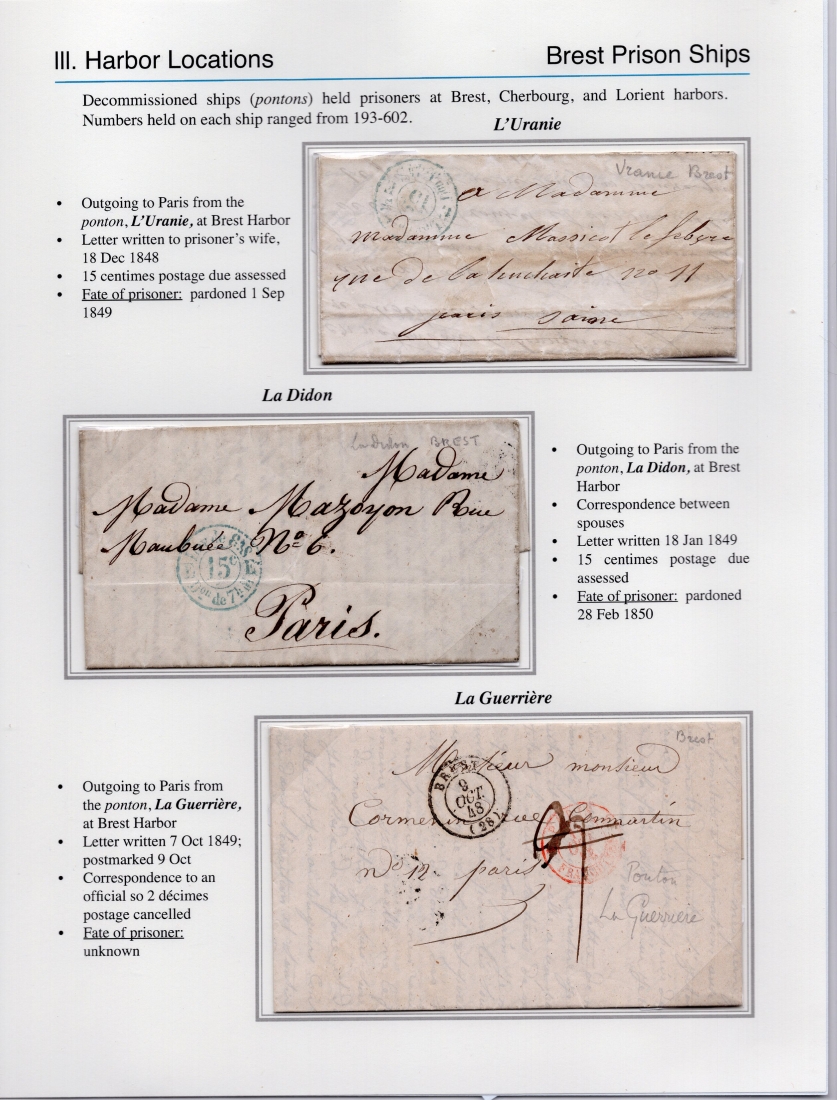 III. Harbor Locations
Brest Prison Ships
Decommissioned ships (pontons) held prisoners at Brest, Cherbourg, and Lorient harbors.
Numbers held on each ship ranged from 193-602.
L'Uranie
• Outgoing to Paris from the
ponton, L'Uranie, at Brest Harbor
• Letter written to prisoner's wife,
18 Dec 1848
• 15 centimes postage due assessed
• Fate of prisoner: pardoned 1 Sep
1849
Uranie Brest
a Madamme
madamme Massicot lefebvre
rue de la huchaite no 11
paris saine
La Didon
La Didon BREST
Madame
Madame Mazoyon Rue
Maubuée No 6.
15c
E E
de 7h
Paris.
• Outgoing to Paris from the
ponton, La Didon, at Brest
Harbor
• Correspondence between
spouses
• Letter written 18 Jan 1849
• 15 centimes postage due
assessed
• Fate of prisoner: pardoned
28 Feb 1850
La Guerrière
• Outgoing to Paris from
the ponton, La Guerrière,
at Brest Harbor
• Letter written 7 Oct 1849;
postmarked 9 Oct
• Correspondence to an
official so 2 décimes
postage cancelled
• Fate of prisoner:
unknown
Brest
monsieur
BREST
9
OCT.
48
(28)
Cormenin rue
no 12 paris
Ponton
La Guerriere